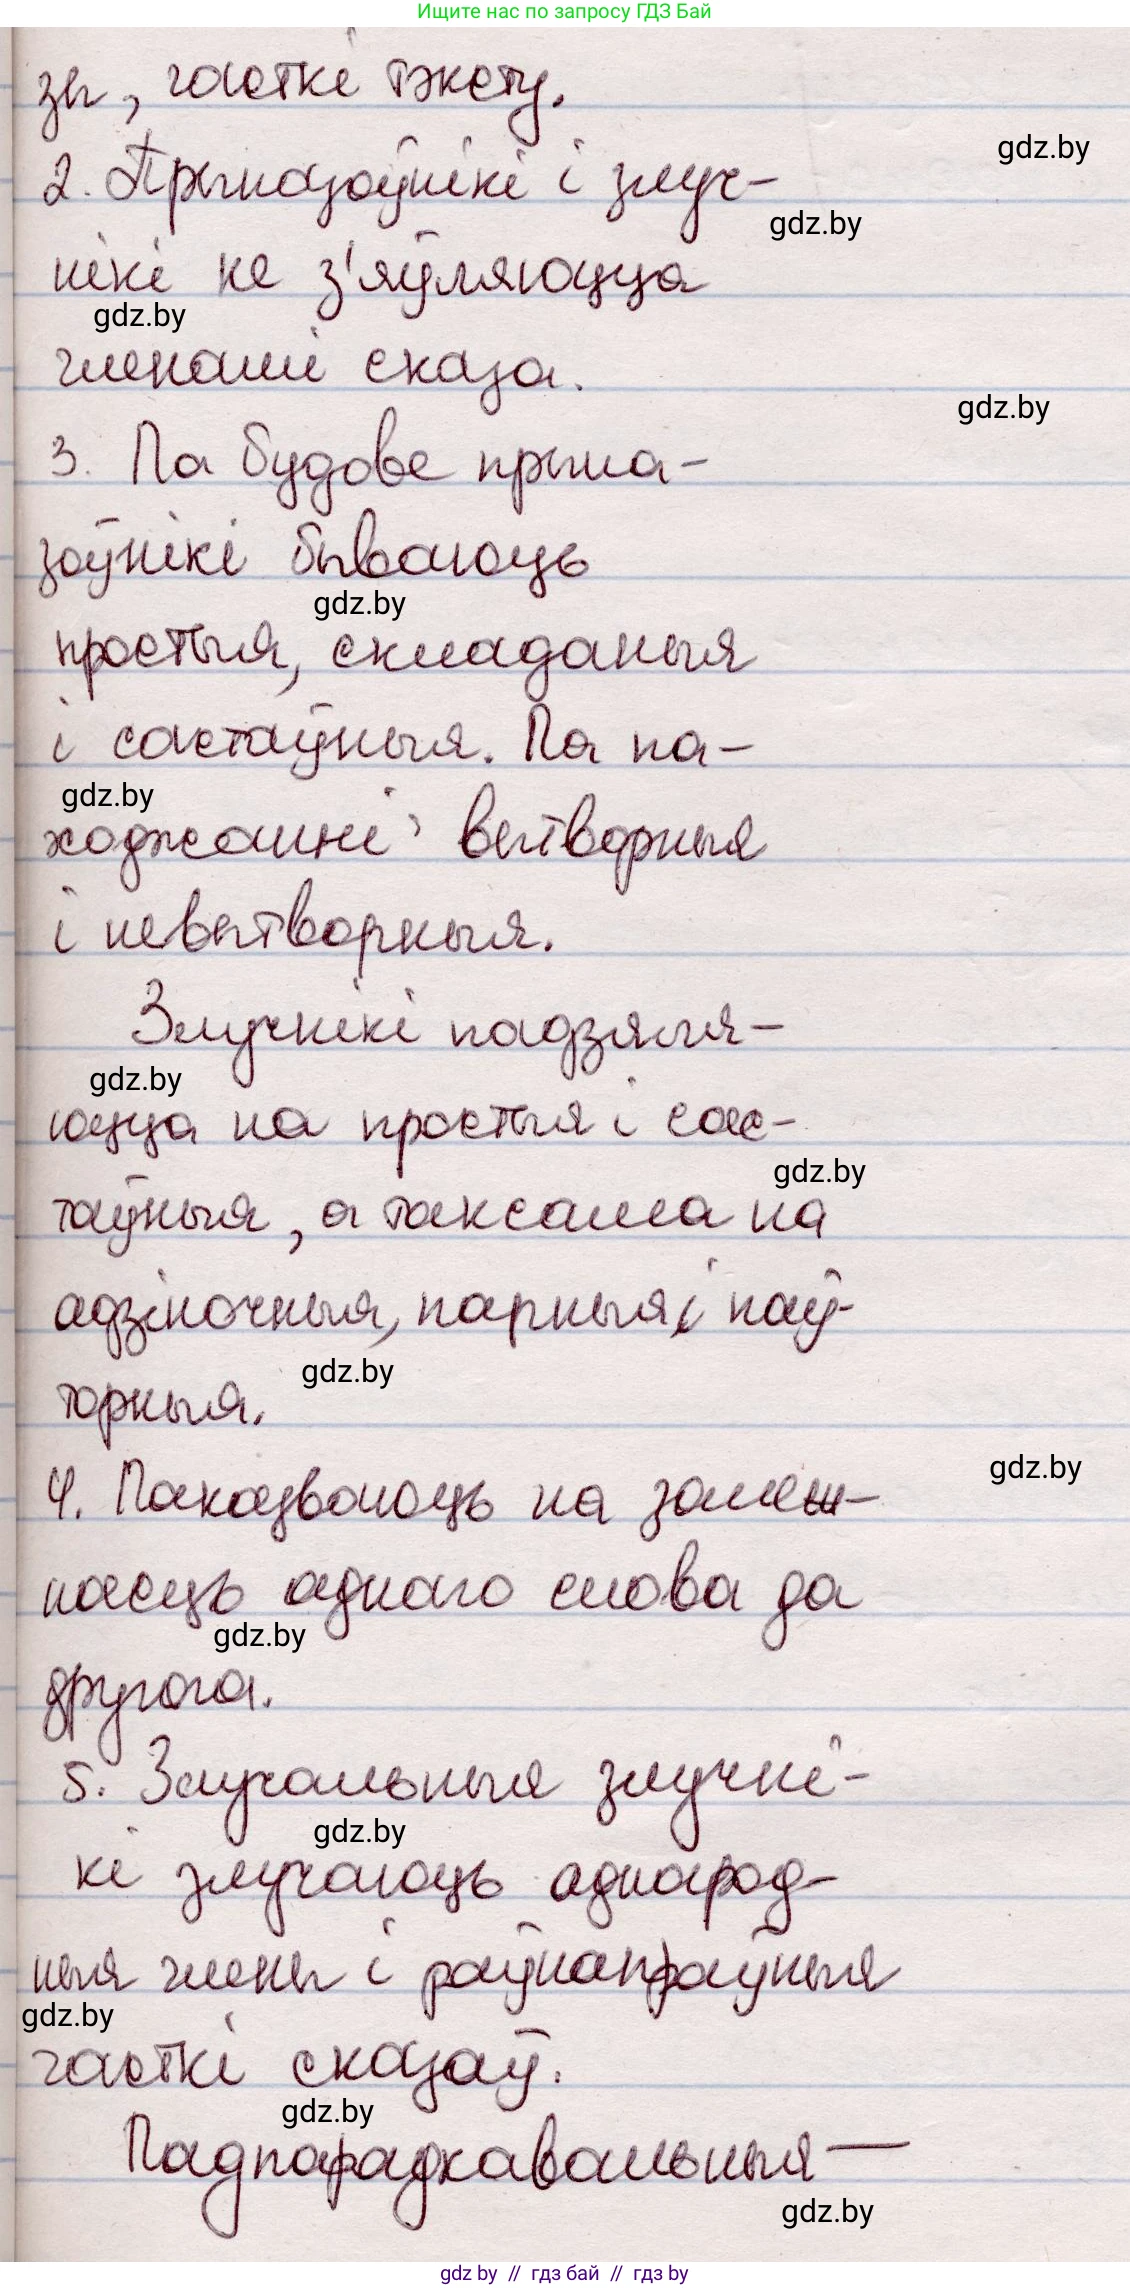 Ищите нас по запросу ГДЗ Бай
зы, часткі тэксту.
gdz.by
2. Прыназоўнікі і злуч-
gdz.by
нікі не з'яўляюцца
gdz.by
членамі сказа.
gdz.by
3. Па будове прына-
зоўнікі бываюць
gdz.by
простыя, складаныя
і састаўныя. Па па-
gdz.by
ходжанні вытворныя
і невытворныя.
Злучнікі падзяля-
gdz.by
юцца на простыя і сас-
gdz.by
таўныя, а таксама на
адзіночныя, парныя і паў-
gdz.by
торныя.
gdz.by
4. Паказваюць на залеж-
насць аднаго слова да
gdz.by
другога.
5. Злучальныя злучні-
gdz.by
кі злучаюць аднарод-
ныя члены і раўнапраўныя
gdz.by
часткі сказаў.
gdz.by
Падпарадкавальныя —
gdz.by
gdz by // гдз бай // гдз by